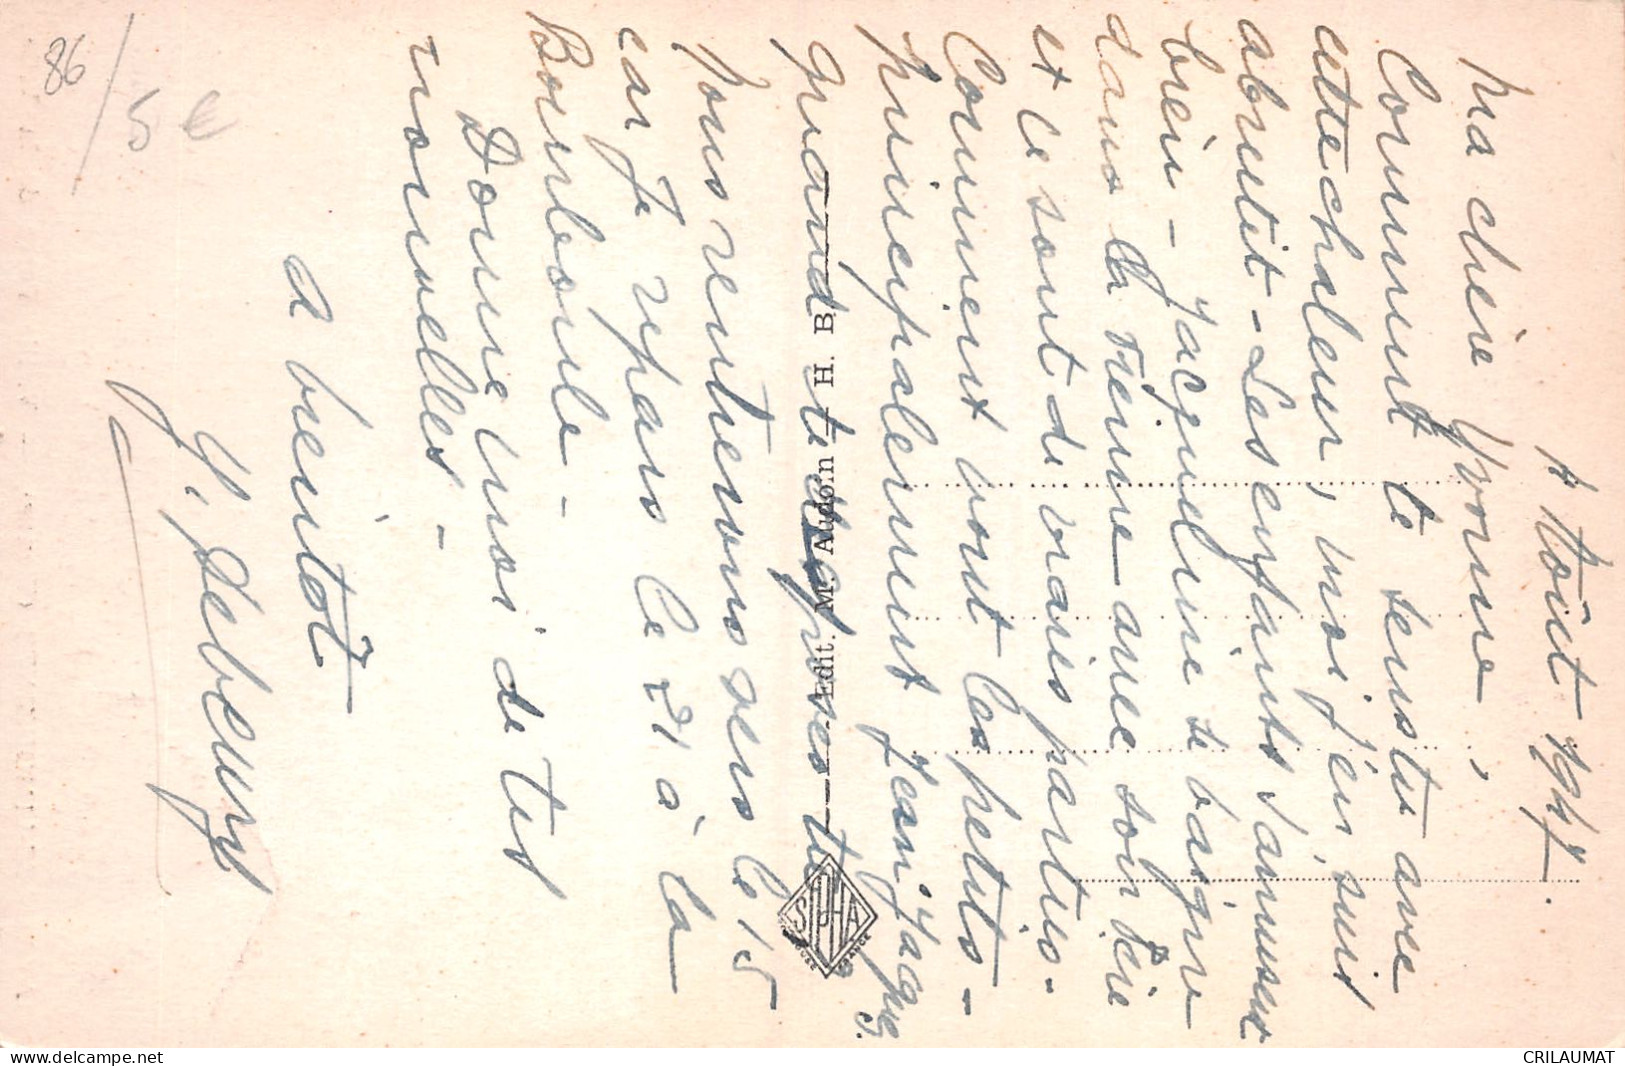 Août 1947.
Ma chère Yvonne,
Comment te sens tu avec
cette chaleur, moi j'en suis
abrutit - Les enfants s'amusent
bien - Jacqueline se baigne
dans la Vienne avec son Père
et ce sont de vrais parties.
Comment vont les petits -
principalement Jean Jacques.
quand te reposes tu ?
Nous rentrerons vers le 15
car je repars le 21 à la
Bourboule -
Donne moi de tes
nouvelles -
a bientôt
Y. Lebeurg
Edit. M. Audoin — H. B.
SPHA
FRANCE
86 / 5 €
CRILAUMAT